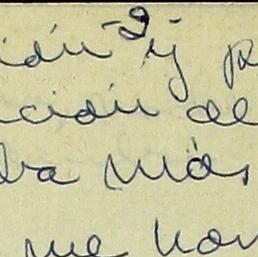 ión y p
ción de
ba más
me han